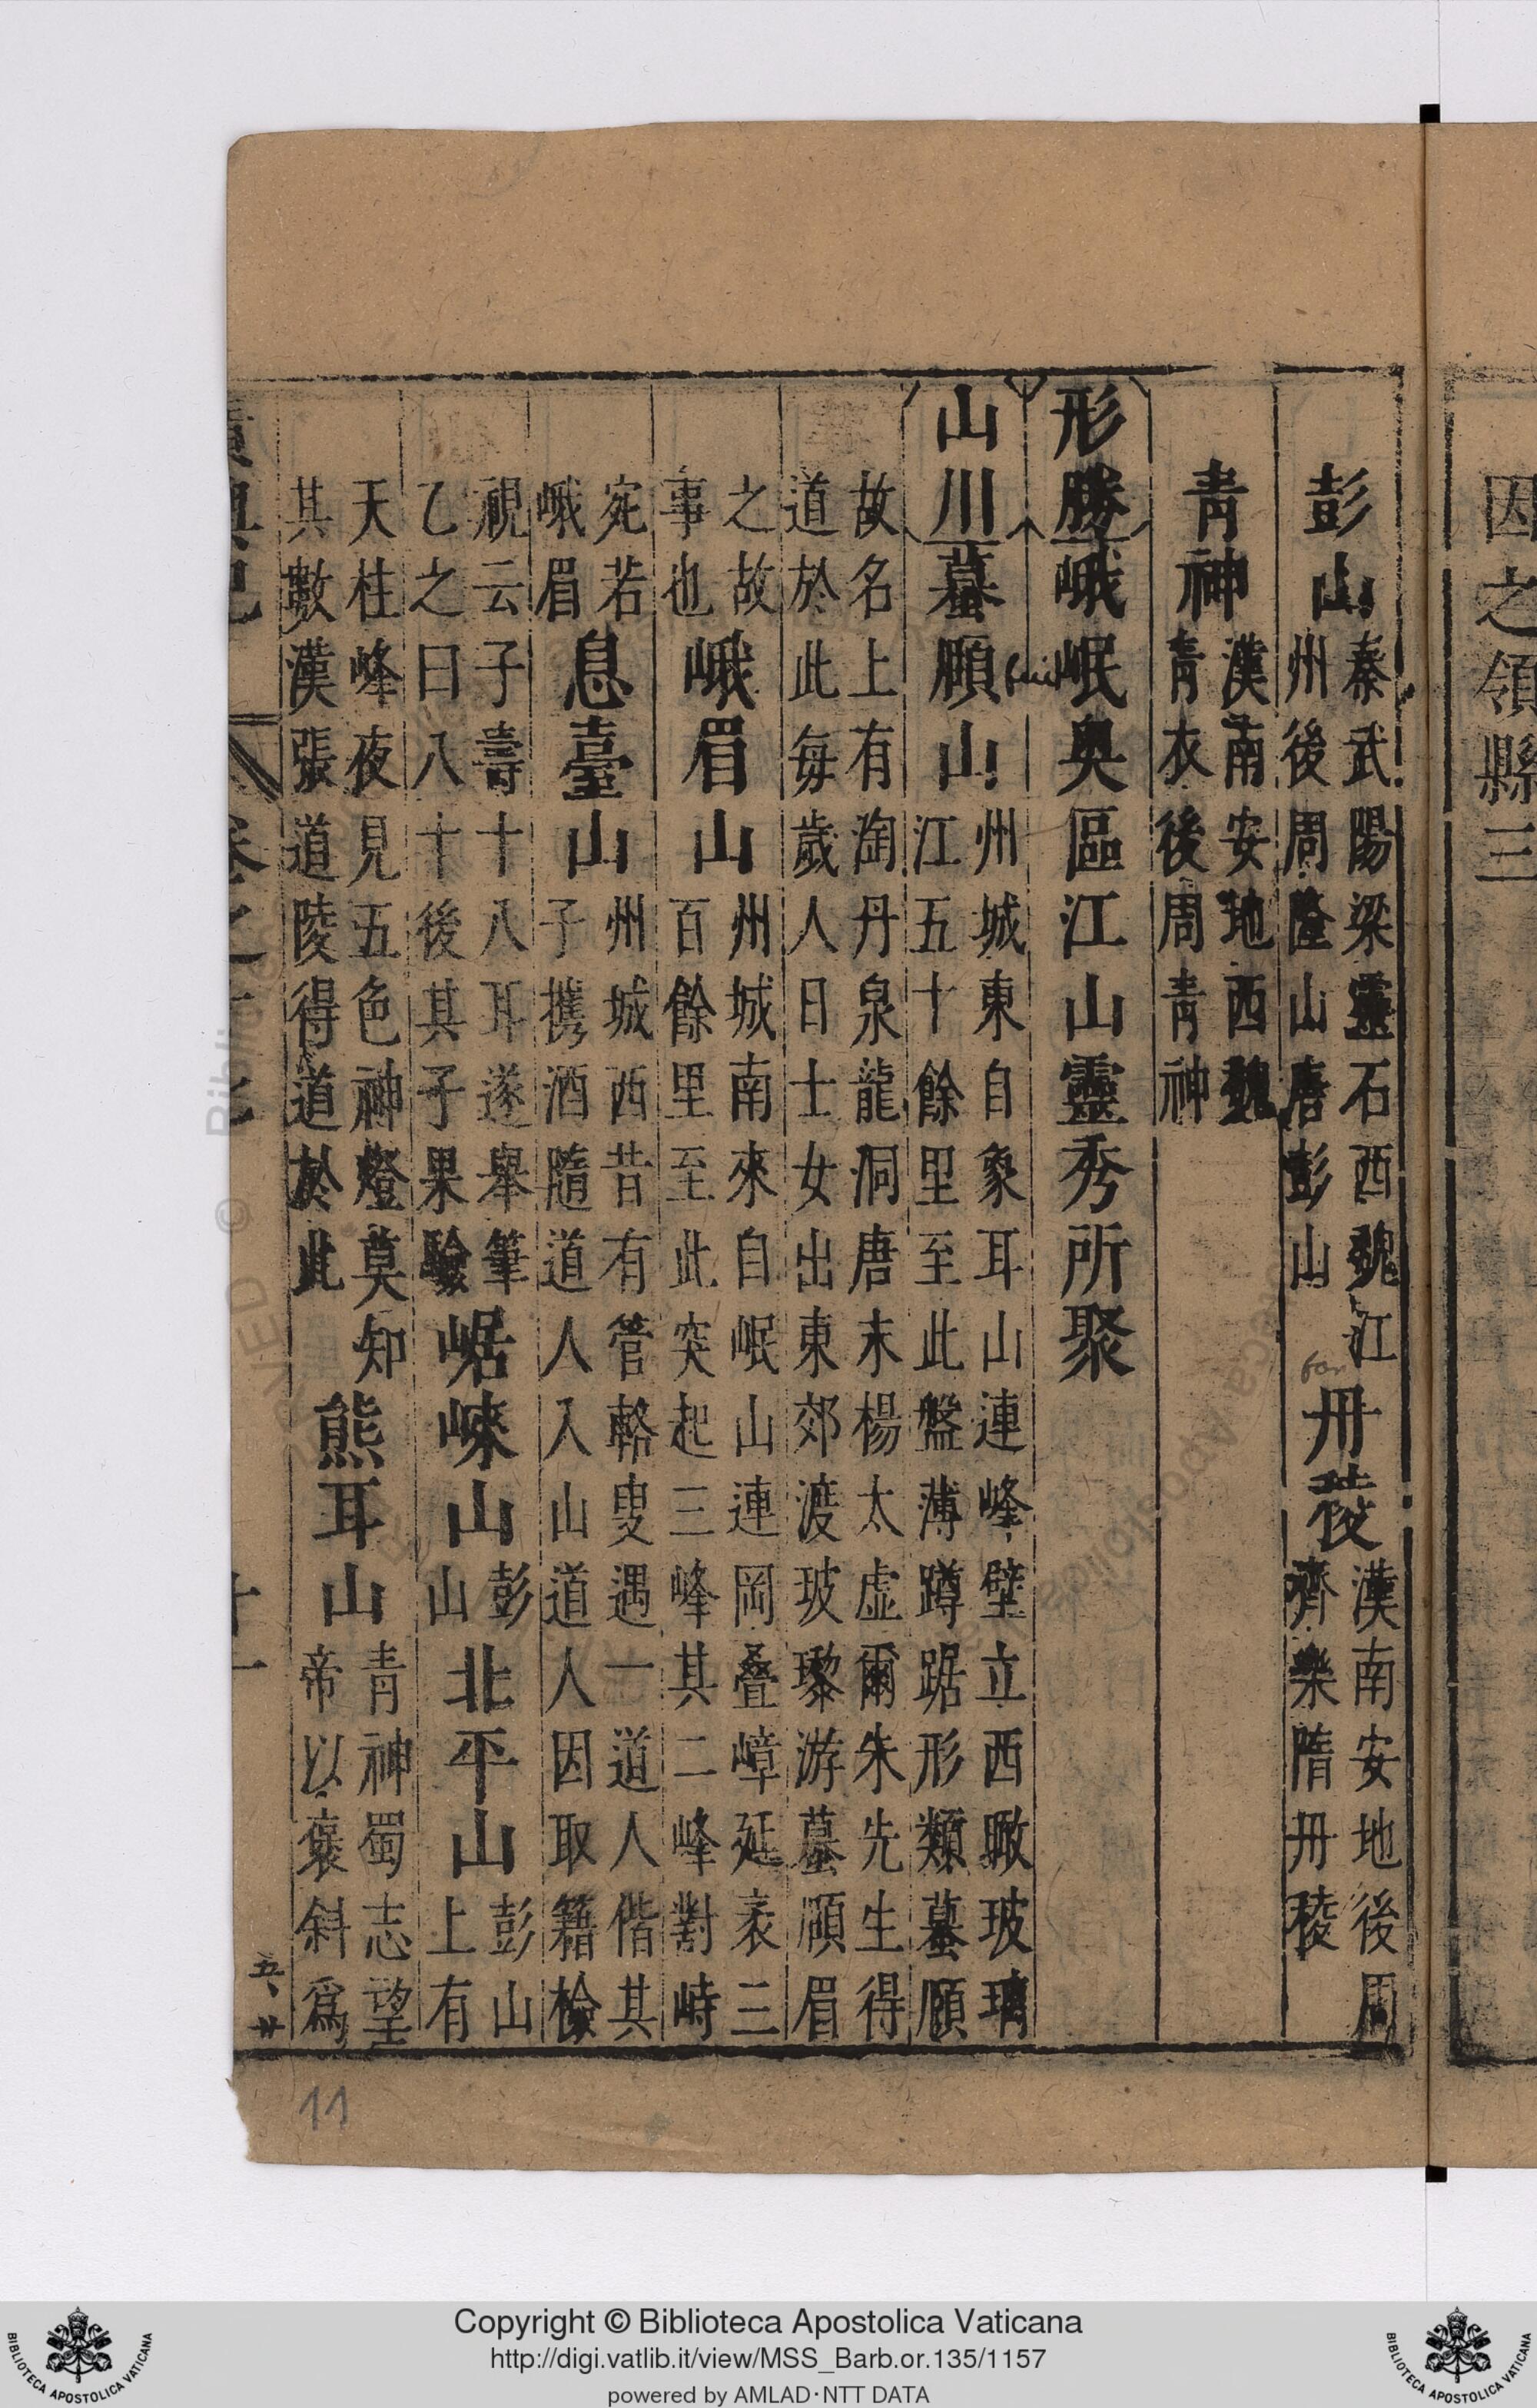 因之領縣三
彭山秦武陽梁靈石西魏江州後周隆山唐彭山 丹稜漢南安地後周齊樂隋丹稜
青神漢南安地西魏青衣後周青神
形勝峨岷奥區江山靈秀所聚
山川蟇頤山州城東自象耳山連峰壁立西瞰玻璃江五十餘里至此盤薄蹲踞形類蟇頤
故名上有淘丹泉龍洞唐末楊太虚爾朱先生得道於此每歲人日士女出東郊渡玻瓈游蟇頤眉
之故事也峨眉山州城南來自岷山連岡叠嶂延袤三百餘里至此突起三峰其二峰對峙
宛若峨眉息臺山州城西昔有管輅叟遇一道人偕其子携酒隨道人入山道人因取籍檢
視云子壽十八耳遂舉筆乙之曰八十後其子果驗崌崍山彭山北平山彭山上有
天柱峰夜見五色神燈莫知其數漢張道陵得道於此熊耳山青神蜀志望帝以褒斜爲
卷之
十一
五、廿
11
Copyright © Biblioteca Apostolica Vaticana
http://digi.vatlib.it/view/MSS_Barb.or.135/1157
powered by AMLAD·NTT DATA
BIBLIOTECA APOSTOLICA VATICANA
BIBLIOTECA APOSTOLICA VATICANA